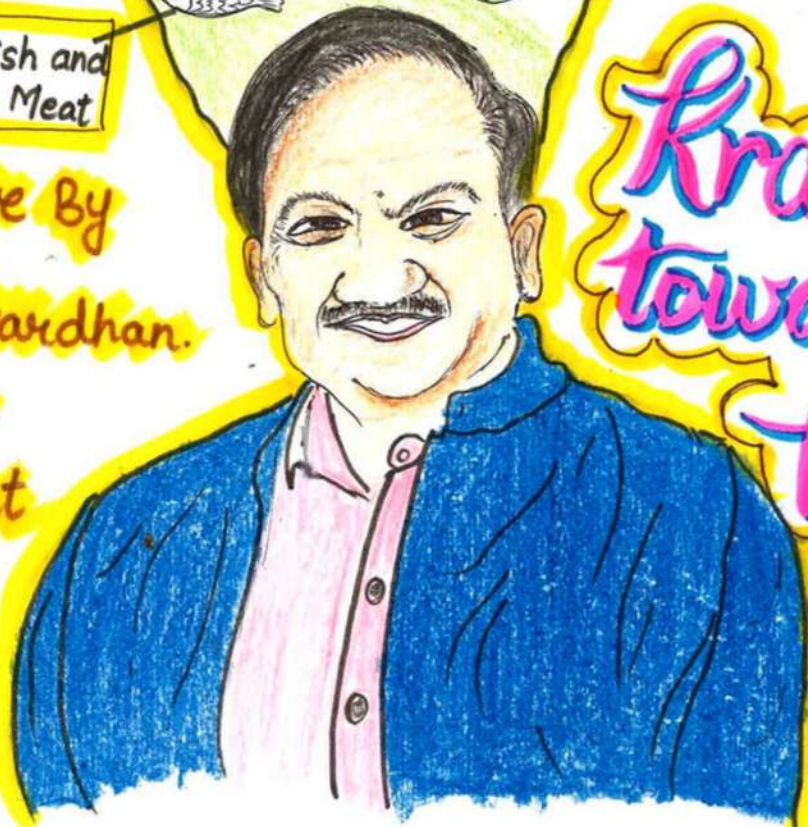 sh and
Meat
e By
ardhan.
t
kra
towa